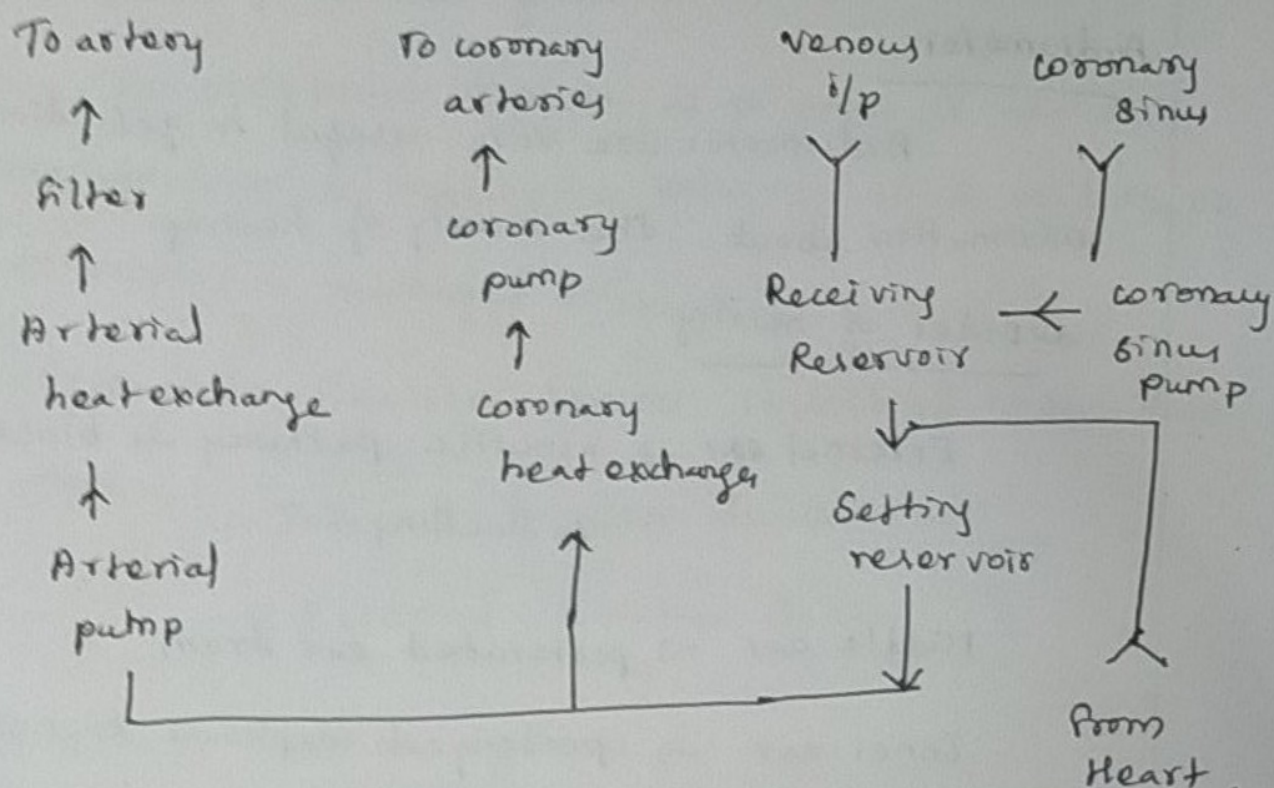 To artery
↑
filter
↑
Arterial
heat exchange
↑
Arterial
pump
To coronary
arteries
↑
coronary
pump
↑
coronary
heat exchange
venous
i/p
Receiving
Reservoir
Setting
reservoir
coronary
sinus
coronary
sinus
pump
from
Heart